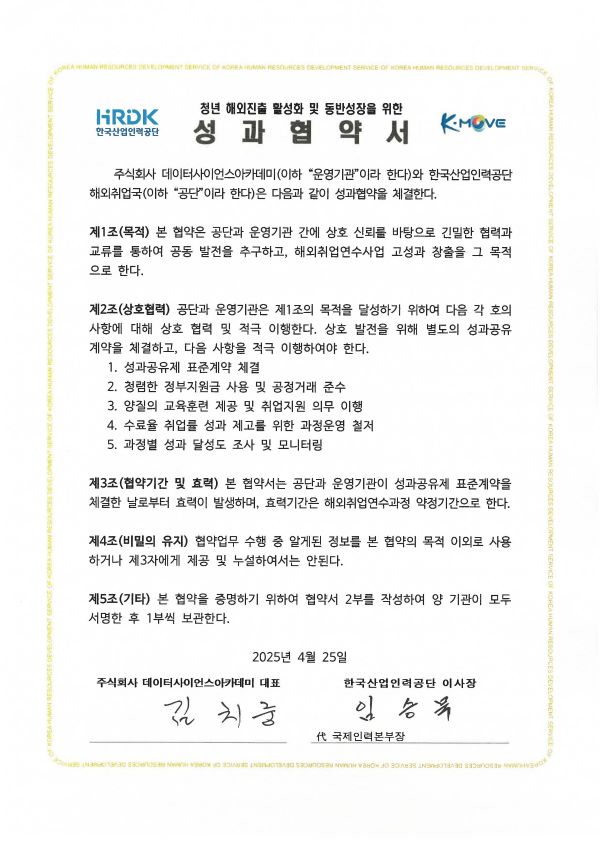 KOREA HUMAN RESOURCES DEVELOPMENT SERVICE OF KOREA HUMAN RESOURCES DEVELOPMENT SERVICE OF KOREA HUMAN RESOURCES DEVELOPMENT SERVICE OF
HRDK
한국산업인력공단
청년 해외진출 활성화 및 동반성장을 위한
성과협약서
K-MOVE
주식회사 데이터사이언스아카데미(이하 “운영기관”이라 한다)와 한국산업인력공단
해외취업국(이하 “공단”이라 한다)은 다음과 같이 성과협약을 체결한다.
제1조(목적) 본 협약은 공단과 운영기관 간에 상호 신뢰를 바탕으로 긴밀한 협력과
교류를 통하여 공동 발전을 추구하고, 해외취업연수사업 고성과 창출을 그 목적
으로 한다.
제2조(상호협력) 공단과 운영기관은 제1조의 목적을 달성하기 위하여 다음 각 호의
사항에 대해 상호 협력 및 적극 이행한다. 상호 발전을 위해 별도의 성과공유
계약을 체결하고, 다음 사항을 적극 이행하여야 한다.
1. 성과공유제 표준계약 체결
2. 청렴한 정부지원금 사용 및 공정거래 준수
3. 양질의 교육훈련 제공 및 취업지원 의무 이행
4. 수료율 취업률 성과 제고를 위한 과정운영 철저
5. 과정별 성과 달성도 조사 및 모니터링
제3조(협약기간 및 효력) 본 협약서는 공단과 운영기관이 성과공유제 표준계약을
체결한 날로부터 효력이 발생하며, 효력기간은 해외취업연수과정 약정기간으로 한다.
제4조(비밀의 유지) 협약업무 수행 중 알게된 정보를 본 협약의 목적 이외로 사용
하거나 제3자에게 제공 및 누설하여서는 안된다.
제5조(기타) 본 협약을 증명하기 위하여 협약서 2부를 작성하여 양 기관이 모두
서명한 후 1부씩 보관한다.
2025년 4월 25일
주식회사 데이터사이언스아카데미 대표
한국산업인력공단 이사장
代 국제인력본부장